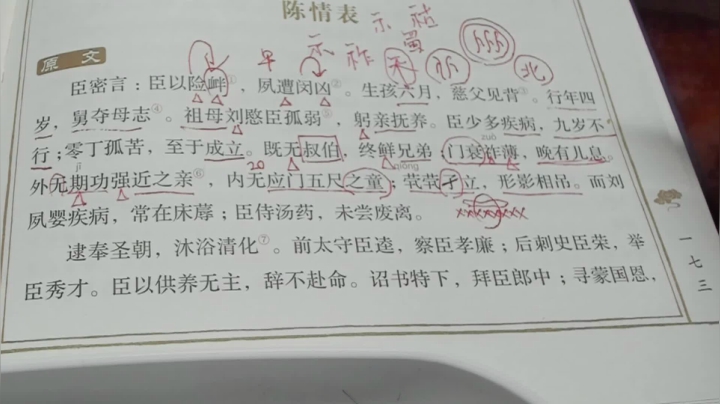 陈情表
示 祜
早 示 祚 禾 北
原文
臣密言：臣以险衅①，夙遭闵凶②。生孩六月，慈父见背③。行年四
岁，舅夺母志④。祖母刘愍臣孤弱⑤，躬亲抚养。臣少多疾病，九岁不
zuò
行；零丁孤苦，至于成立。既无叔伯，终鲜兄弟；门衰祚薄，晚有儿息。
jī qiǎng qióng
外无期功强近之亲⑥，内无应门五尺之童；茕茕孑立，形影相吊。而刘
夙婴疾病，常在床蓐；臣侍汤药，未尝废离。
逮奉圣朝，沐浴清化⑦。前太守臣逵，察臣孝廉；后刺史臣荣，举
臣秀才。臣以供养无主，辞不赴命。诏书特下，拜臣郎中；寻蒙国恩，
一七三